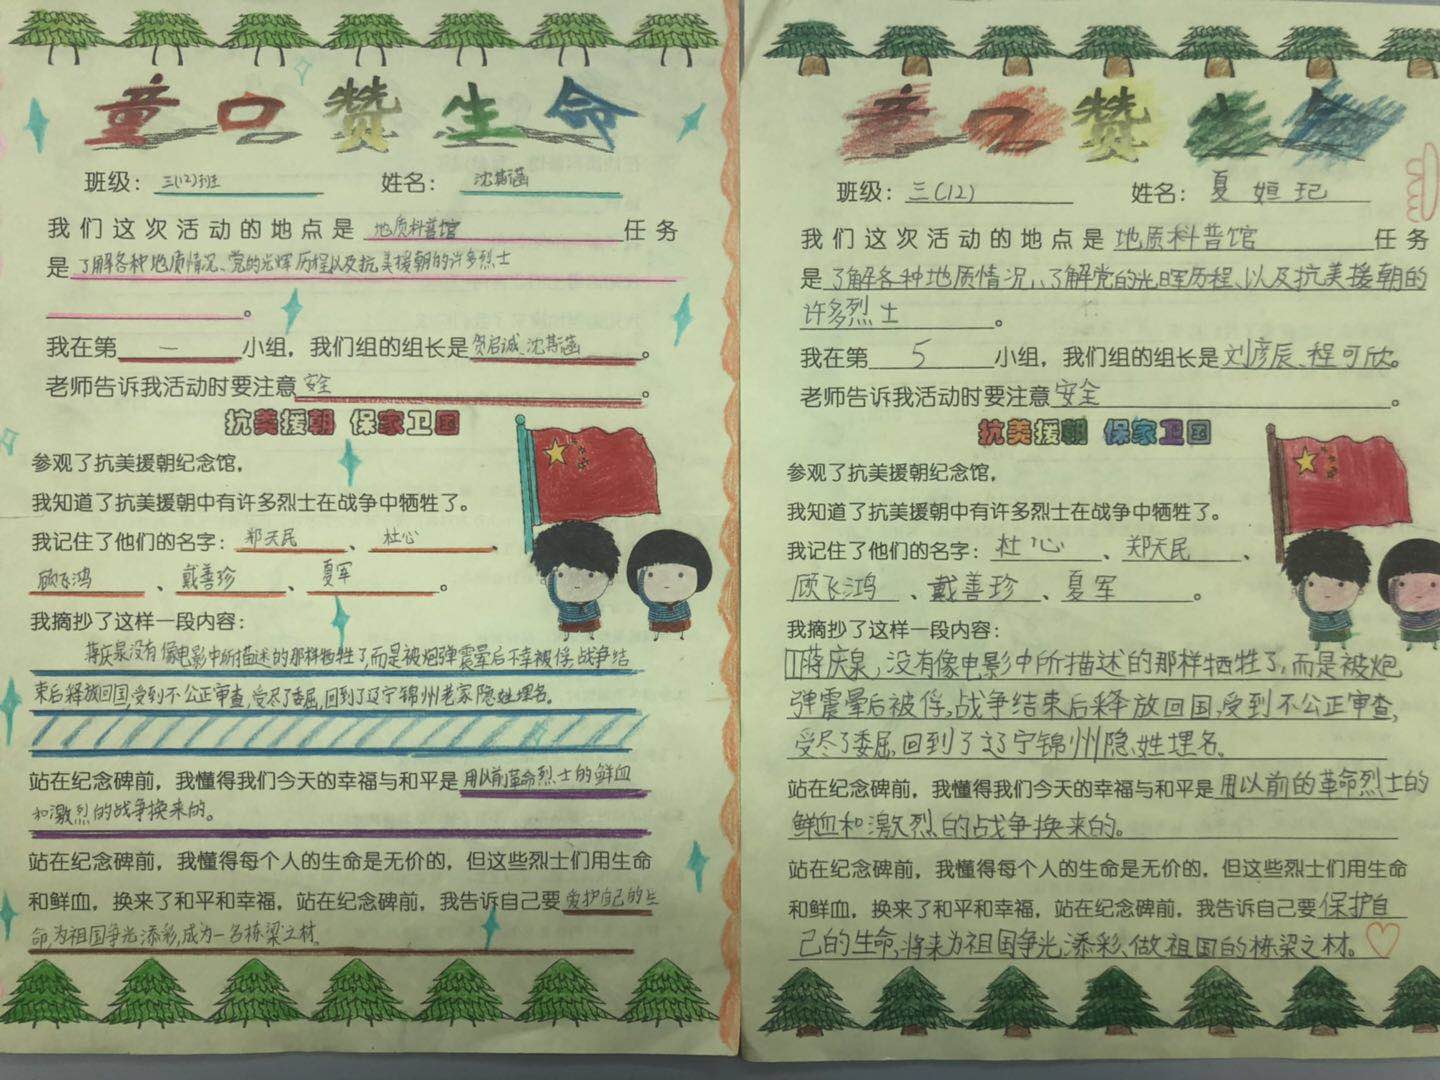 童口赞生命
班级：三(12)班 姓名：沈斯菡
我们这次活动的地点是 地质科普馆 任务
是 了解各种地质情况、党的光辉历程以及抗美援朝的许多烈士
。
我在第 一 小组，我们组的组长是 贺启诚、沈斯菡 。
老师告诉我活动时要注意 安全 。
抗美援朝 保家卫国
参观了抗美援朝纪念馆，
我知道了抗美援朝中有许多烈士在战争中牺牲了。
我记住了他们的名字： 郑天民 、 杜心 、
顾飞鸿 、 戴善珍 、 夏军 。
我摘抄了这样一段内容：
蒋庆泉没有像电影中所描述的那样牺牲了,而是被炮弹震晕后不幸被俘,战争结
束后释放回国,受到不公正审查,受尽了委屈,回到了辽宁锦州老家隐姓埋名。
站在纪念碑前，我懂得我们今天的幸福与和平是 用以前革命烈士的鲜血
和激烈的战争换来的。
站在纪念碑前，我懂得每个人的生命是无价的，但这些烈士们用生命
和鲜血，换来了和平和幸福，站在纪念碑前，我告诉自己要 爱护自己的生
命,为祖国争光添彩,成为一名栋梁之材。
童口赞生命
班级：三(12) 姓名：夏姮玘
我们这次活动的地点是 地质科普馆 任务
是 了解各种地质情况、了解党的光晖历程、以及抗美援朝的
许多烈士 。
我在第 5 小组，我们组的组长是 刘彦辰、程可欣。
老师告诉我活动时要注意 安全 。
抗美援朝 保家卫国
参观了抗美援朝纪念馆，
我知道了抗美援朝中有许多烈士在战争中牺牲了。
我记住了他们的名字： 杜心 、 郑天民 、
顾飞鸿 、 戴善珍 、 夏军 。
我摘抄了这样一段内容：
蒋庆泉,没有像电影中所描述的那样牺牲了,而是被炮
弹震晕后被俘,战争结束后释放回国,受到不公正审查,
受尽了委屈,回到了辽宁锦州隐姓埋名。
站在纪念碑前，我懂得我们今天的幸福与和平是 用以前的革命烈士的
鲜血和激烈的战争换来的。
站在纪念碑前，我懂得每个人的生命是无价的，但这些烈士们用生命
和鲜血，换来了和平和幸福，站在纪念碑前，我告诉自己要 保护自
己的生命,将来为祖国争光添彩、做祖国的栋梁之材。